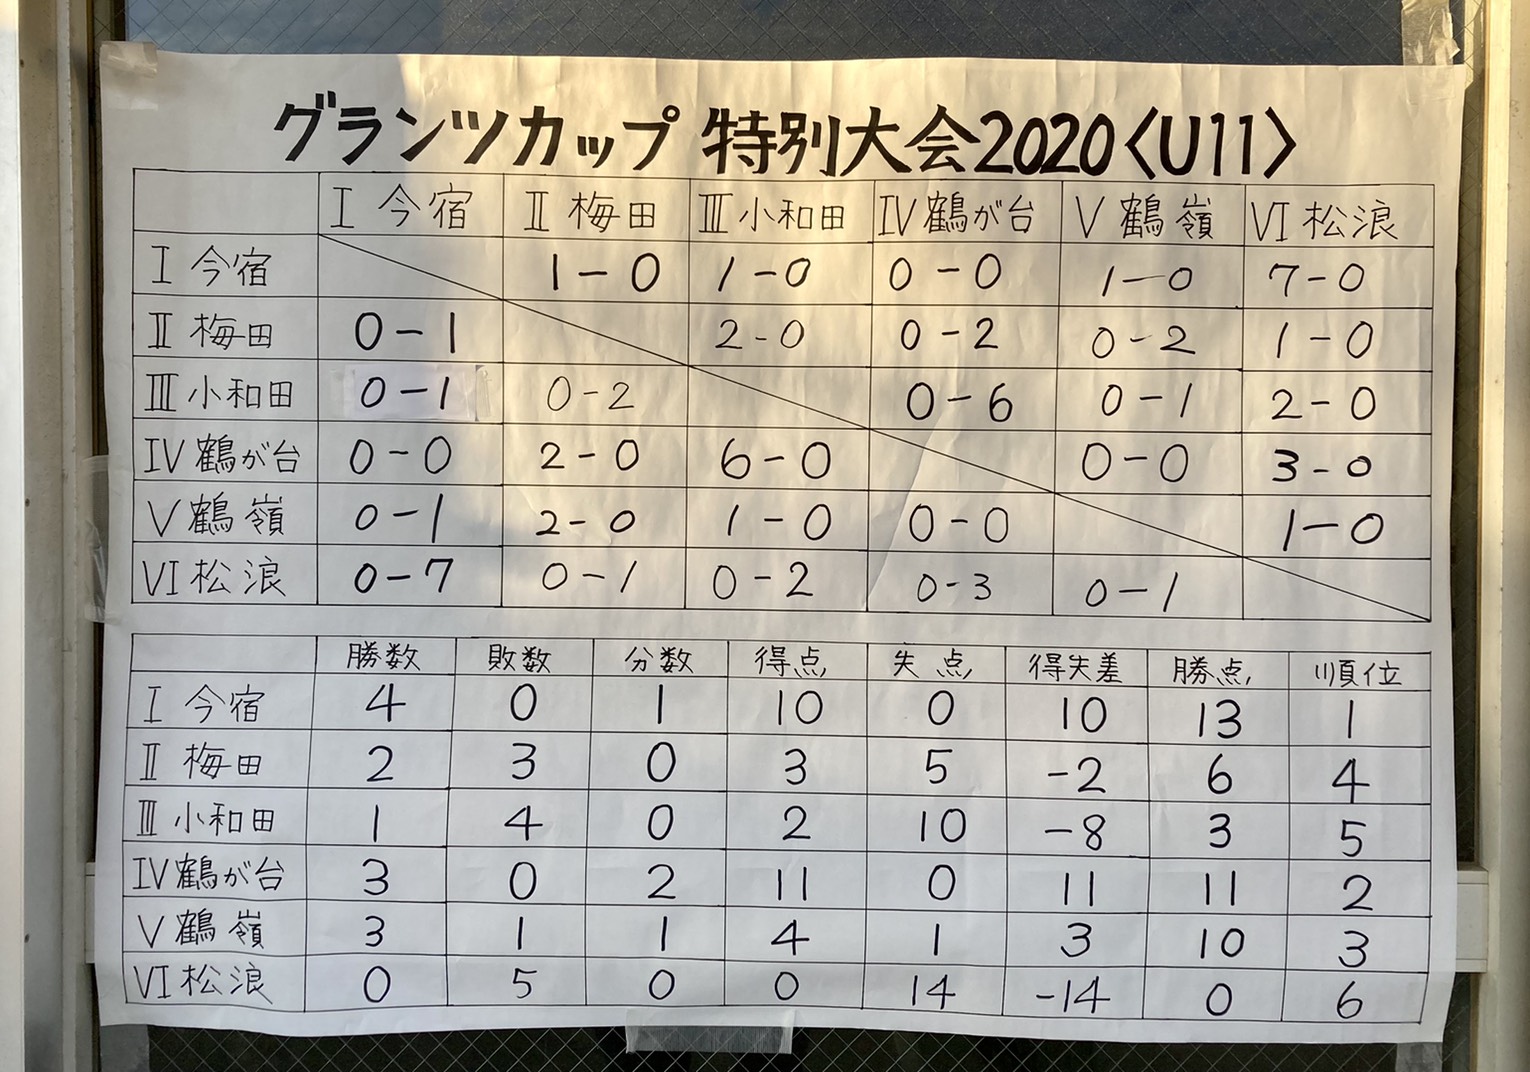 グランツカップ 特別大会2020〈U11〉
I 今宿 II 梅田 III 小和田 IV 鶴が台 V 鶴嶺 VI 松浪
I 今宿 1-0 1-0 0-0 1-0 7-0
II 梅田 0-1 2-0 0-2 0-2 1-0
III 小和田 0-1 0-2 0-6 0-1 2-0
IV 鶴が台 0-0 2-0 6-0 0-0 3-0
V 鶴嶺 0-1 2-0 1-0 0-0 1-0
VI 松浪 0-7 0-1 0-2 0-3 0-1
勝数 敗数 分数 得点 失点 得失差 勝点 順位
I 今宿 4 0 1 10 0 10 13 1
II 梅田 2 3 0 3 5 -2 6 4
III 小和田 1 4 0 2 10 -8 3 5
IV 鶴が台 3 0 2 11 0 11 11 2
V 鶴嶺 3 1 1 4 1 3 10 3
VI 松浪 0 5 0 0 14 -14 0 6